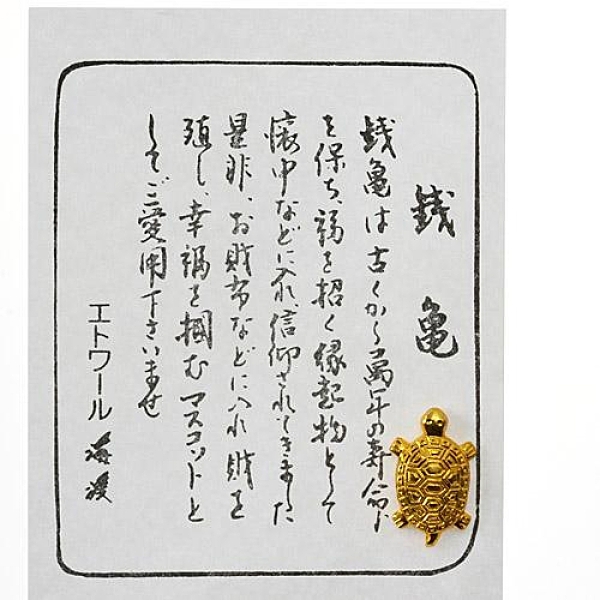 銭亀
銭亀は古くから萬年の寿命
を保ち、福を招く縁起物として
懐中などに入れ、信仰されてきました
是非、お財布などに入れ財を
殖し、幸福を掴むマスコットと
してご愛用下さいませ
エトワール海渡